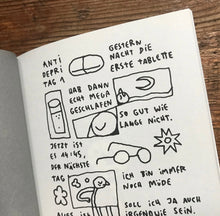 ANTI
DEPRI
TAG 1
GESTERN
NACHT DIE
ERSTE TABLETTE
GAB DANN
ECHT MEGA
GESCHLAFEN
SO GUT WIE
LANGE NICHT.
JETZT IST
ES 14:45,
DER NÄCHSTE
TAG
ICH BIN IMMER
NOCH MÜDE
SOLL ICH JA AUCH
IRGENDWIE SEIN.